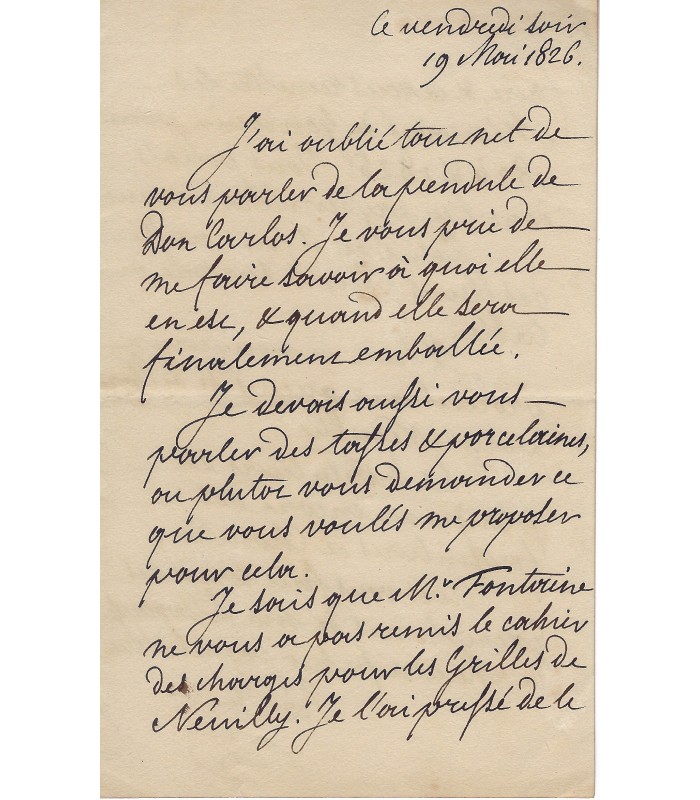 Ce vendredi soir
19 Mai 1826.
J'ai oublié tout net de
vous parler de la pendule de
Don Carlos. Je vous prie de
me faire savoir à quoi elle
en est, & quand elle sera
finalement emballée.
Je devais aussi vous
parler des tasses & porcelaines,
ou plutot vous demander ce
que vous voulés me proposer
pour cela.
Je sais que Mr. Fontaine
ne vous a pas remis le cahier
des charges pour les Grilles de
Neuilly. Je l'ai pressé de le